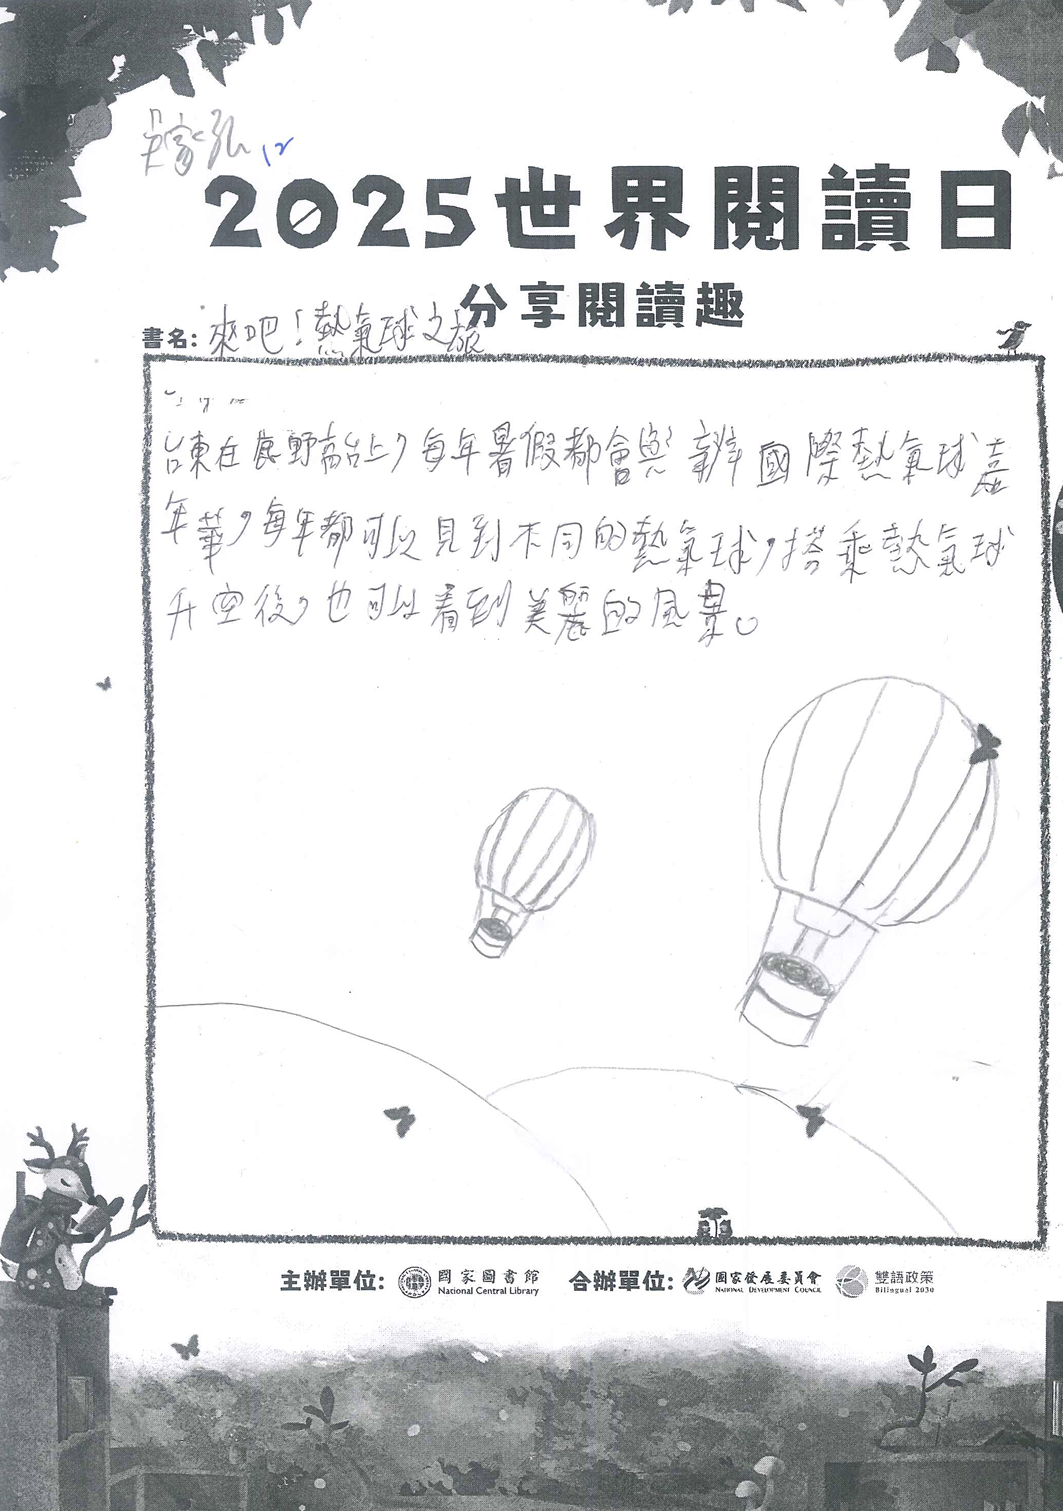 吳家弘 12
2025世界閱讀日
分享閱讀趣
書名: 來吧!熱氣球之旅
台東在鹿野高台上,每年暑假都會舉辦國際熱氣球嘉
年華,每年都可以見到不同的熱氣球,搭乘熱氣球
升空後,也可以看到美麗的風景。
主辦單位: 國家圖書館 National Central Library 合辦單位: 國家發展委員會 National Development Council 雙語政策 Bilingual 2030